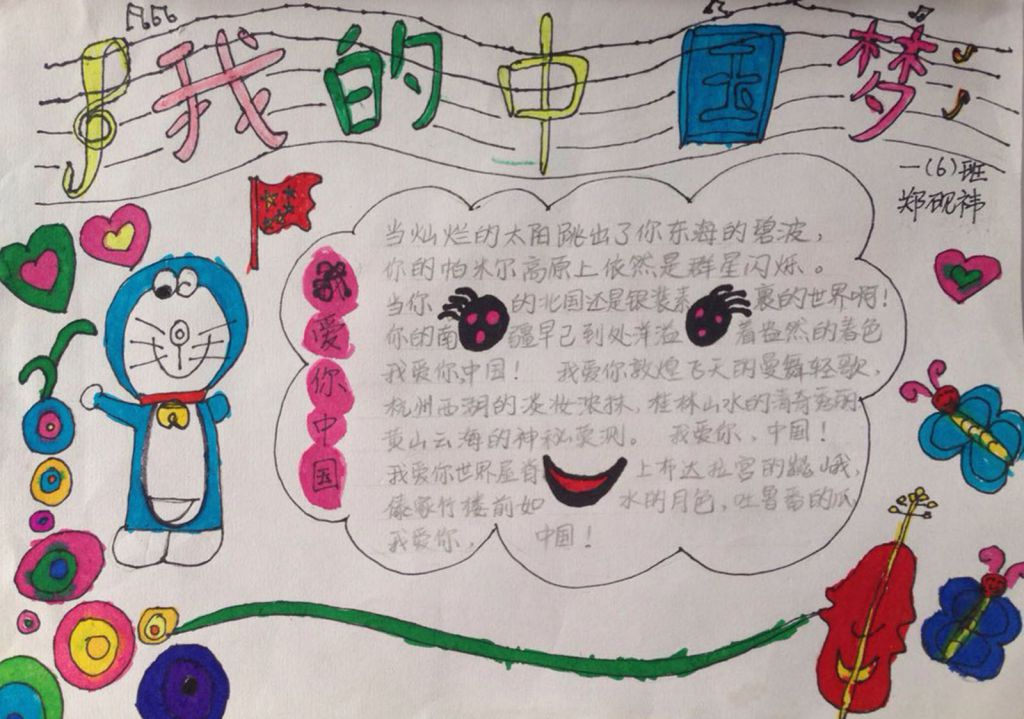 我的中国梦
一(6)班
郑砚祎
我爱你中国
当灿烂的太阳跳出了你东海的碧波，
你的帕米尔高原上依然是群星闪烁。
当你的北国还是银装素裹的世界啊！
你的南疆早已到处洋溢着盎然的春色
我爱你，中国！ 我爱你敦煌飞天的曼舞轻歌，
杭州西湖的淡妆浓抹，桂林山水的清奇秀丽
黄山云海的神秘莫测。 我爱你，中国！
我爱你世界屋脊上布达拉宫的巍峨，
傣家竹楼前如水的月色，吐鲁番的瓜
我爱你， 中国！